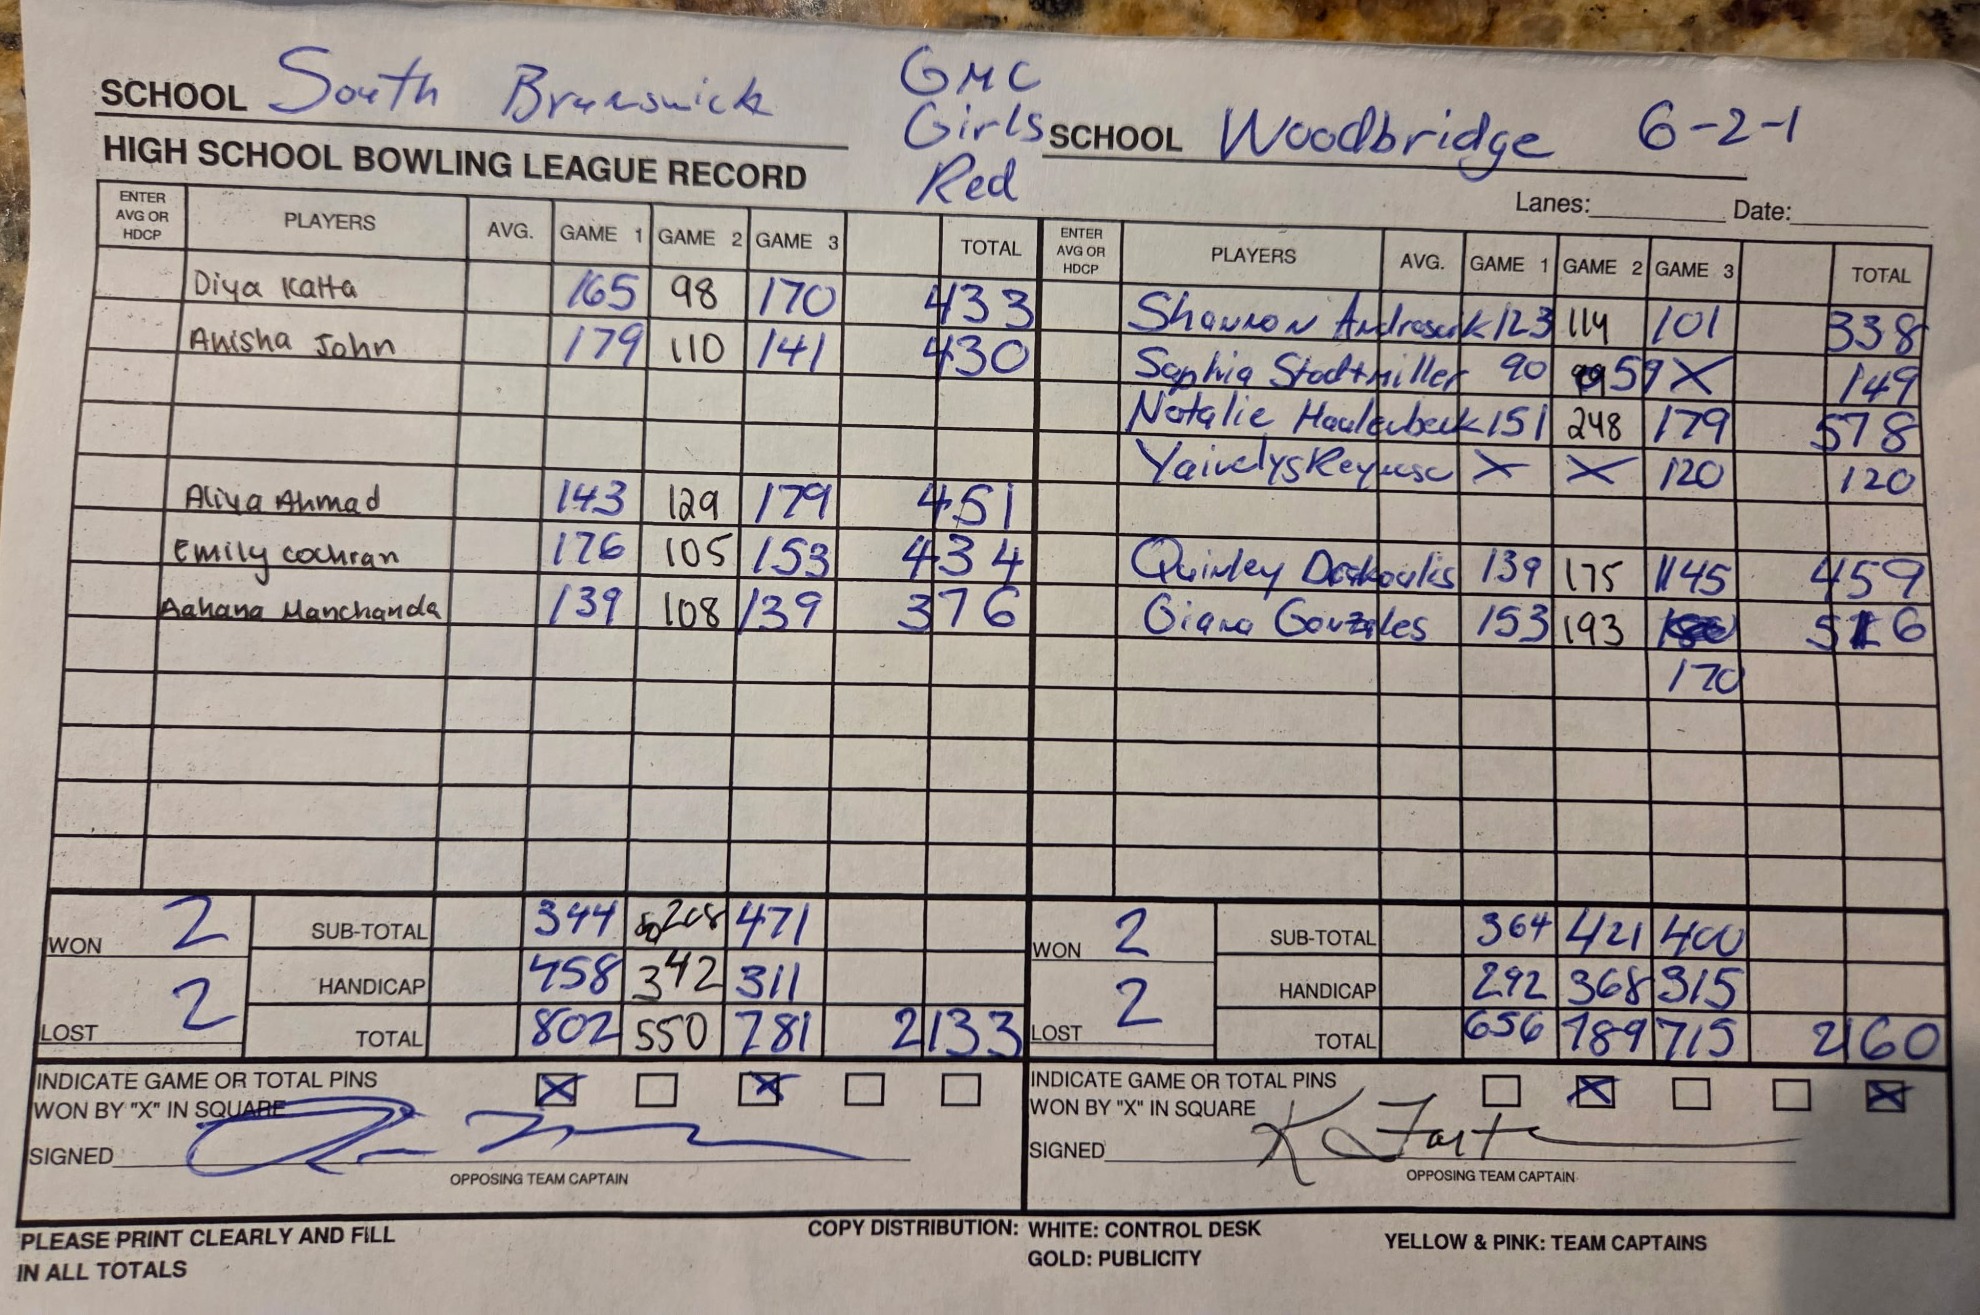 SCHOOL South Brunswick GMC Girls Red SCHOOL Woodbridge 6-2-1
HIGH SCHOOL BOWLING LEAGUE RECORD
Lanes: Date:
ENTER AVG OR HDCP PLAYERS AVG. GAME 1 GAME 2 GAME 3 TOTAL ENTER AVG OR HDCP PLAYERS AVG. GAME 1 GAME 2 GAME 3 TOTAL
Diya Katta 165 98 170 433 Shannon 123 114 101 338
Anisha John 179 110 141 430 Sophia Stadtmiller 90 59 X 149
Natalie 151 248 179 578
X X 120 120
Aliya Ahmad 143 129 179 451
Emily Cochran 176 105 153 434 Quinley 139 175 145 459
Aahana Manchanda 139 108 139 376 Giana Gonzales 153 193 516
170
WON 2 SUB-TOTAL 344 208 471 WON 2 SUB-TOTAL 364 421 400
HANDICAP 458 342 311 HANDICAP 292 368 315
LOST 2 TOTAL 802 550 781 2133 LOST 2 TOTAL 656 789 715 2160
INDICATE GAME OR TOTAL PINS X X INDICATE GAME OR TOTAL PINS X X
WON BY "X" IN SQUARE WON BY "X" IN SQUARE
SIGNED SIGNED
OPPOSING TEAM CAPTAIN OPPOSING TEAM CAPTAIN
PLEASE PRINT CLEARLY AND FILL COPY DISTRIBUTION: WHITE: CONTROL DESK YELLOW & PINK: TEAM CAPTAINS
IN ALL TOTALS GOLD: PUBLICITY